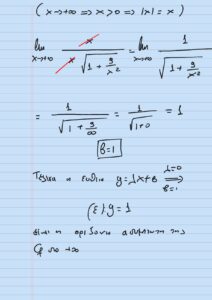 ( x→+∞ ⇒ x>0 ⇒ |x| = x )
lim x→+∞ x / x√(1 + 9/x²) = lim x→+∞ 1 / √(1 + 9/x²)
= 1 / √(1 + 9/∞) = 1 / √(1+0) = 1
β=1
η ευθεία y=λx+β ⇒ λ=0 β=1
(ε) y=1
είναι οριζόντια ασύμπτωτη της
Cf στο +∞